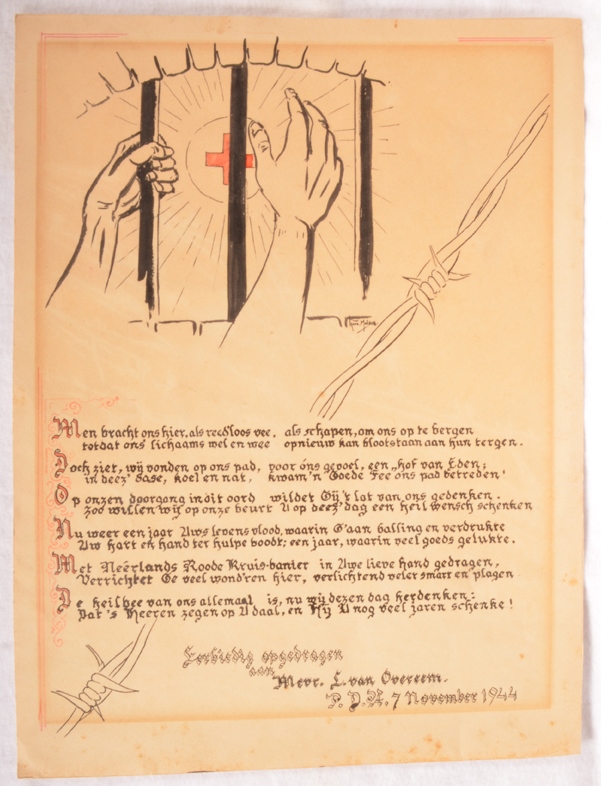 Men bracht ons hier, als reedloos vee, als schapen, om ons op te bergen
totdat ons lichaams wel en wee opnieuw kan blootstaan aan hun tergen.
Doch ziet, wij vonden op ons pad, voor óns gevoel, een „hof van Eden;
in deez' oase, koel en nat, kwam 'n Goede Fee ons pad betreden!
Op onzen doorgang in dit oord wildet Gij 't lot van ons gedenken.
Zoo willen wij op onze beurt U op deez' dag een heilwensch schenken
Nu weer een jaar Uws levens vlood, waarin G'aan balling en verdrukte
Uw hart en hand ter hulpe boodt; een jaar, waarin veel goeds gelukte.
Met Neêrlands Roode Kruis-banier in Uwe lieve hand gedragen,
Verrichtet Ge veel wond'ren hier, verlichtend veler smart en plagen
De heilbee van ons allemaal is, nu wij dezen dag herdenken:
Dat 's Heeren zegen op U daal, en Hij U nog veel jaren schenke!
Eerbiedig opgedragen
aan
Mevr. L. van Overeem.
P. D. A. 7 November 1944